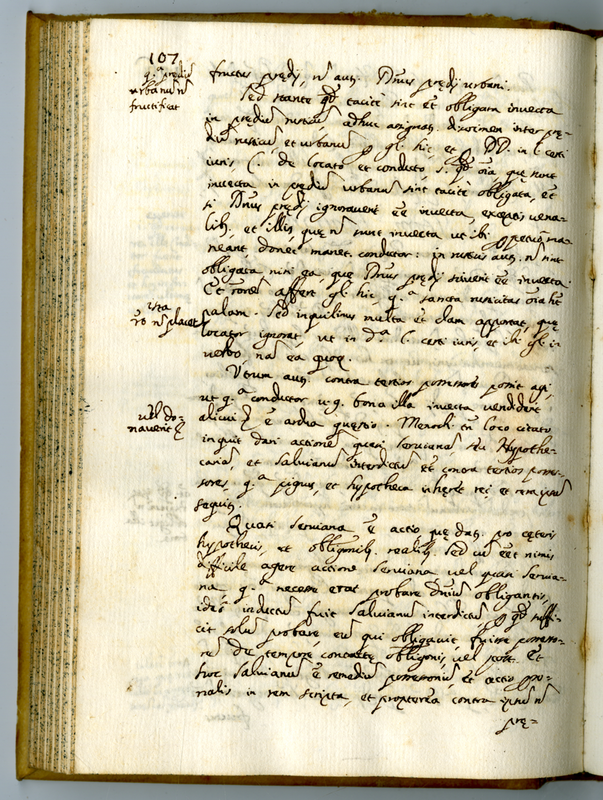 107
q.a prędiũ
urbanũ ñ
fructificat
fructus prędij, ñ aut. Dñus prędij urbani.
Sed stante qđ tacitè sint et obligata invecta
in prędiũ rusticũ, adhuc assignat. discrimen inter prę=
diũ rusticũ, et urbanũ p gl. hic, et DD. in l. certi
iuris, C. de locato et conducto, s. qđ oĩa quę sunt
invecta in prędiũ urbanũ sint tacitè obligata, et
si Dñus prędij ignoraverit eẽ invecta, exceptis vena=
lib., et illis, quę ñ sunt invecta ut ibi ma=
neant, donec manet conductor: In rusticis aut. ñ sint
obligata nisi ea, quę Dñus prędij sciverit eẽ invecta.
Et affert gl. hic, q.a sancta rusticitas oĩa
palam. Sed inquilinus multa et clam apportat, quę
ista
ñ placet
locator ignorat, ut in d.a l. certi iuris, et ibi gl. in
verbo, nam ea quoq.
Utrum aut. contra tertios possessores possit agi,
ut q.a conductor v.g. bona illa invecta vendiderit
vel do=
naverit
alicui, ẽ ardua quęstio. Menoch. in loco citato
inquit dari actionẽ quasi Servianã, seu Hypothe=
cariã, et Salvianũ interdictũ et contra tertios posses=
sores, q.a pignus, et hypotheca inhęret rei, et rem ipsã
sequit.
Quasi Serviana ẽ actio quę dat. pro cęteris
hypothecis, et obligonib. realib. Sed cũ eẽt nimis
difficile agere actione Serviana vel quasi Servia=
na, q.a necesse erat probare Dñiũ obligantis,
ideò inductũ fuit Salvianũ interdictũ p qđ suffi=
cit solũ probare, eũ qui obligavit, fuisse possesso=
rẽ de tempore contractę obligonis, vel post. Et
hoc Salvianũ ẽ remediũ possessoriũ, et actio pso=
nalis in rem scripta, et proptereà contra ipsũ ñ
prę=